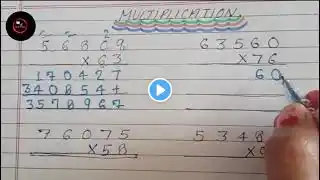 MULTIPLICATION
56809
X63
170427
340854+
3578967
63560
X76
60
76075
X58
5348
X